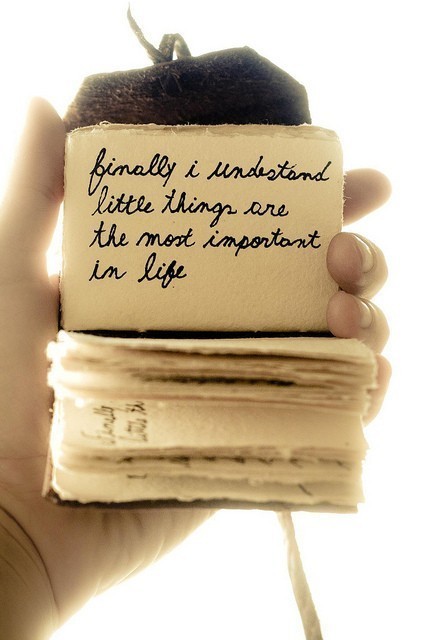 finally i undestand
little things are
the most important
in life
finally
little th